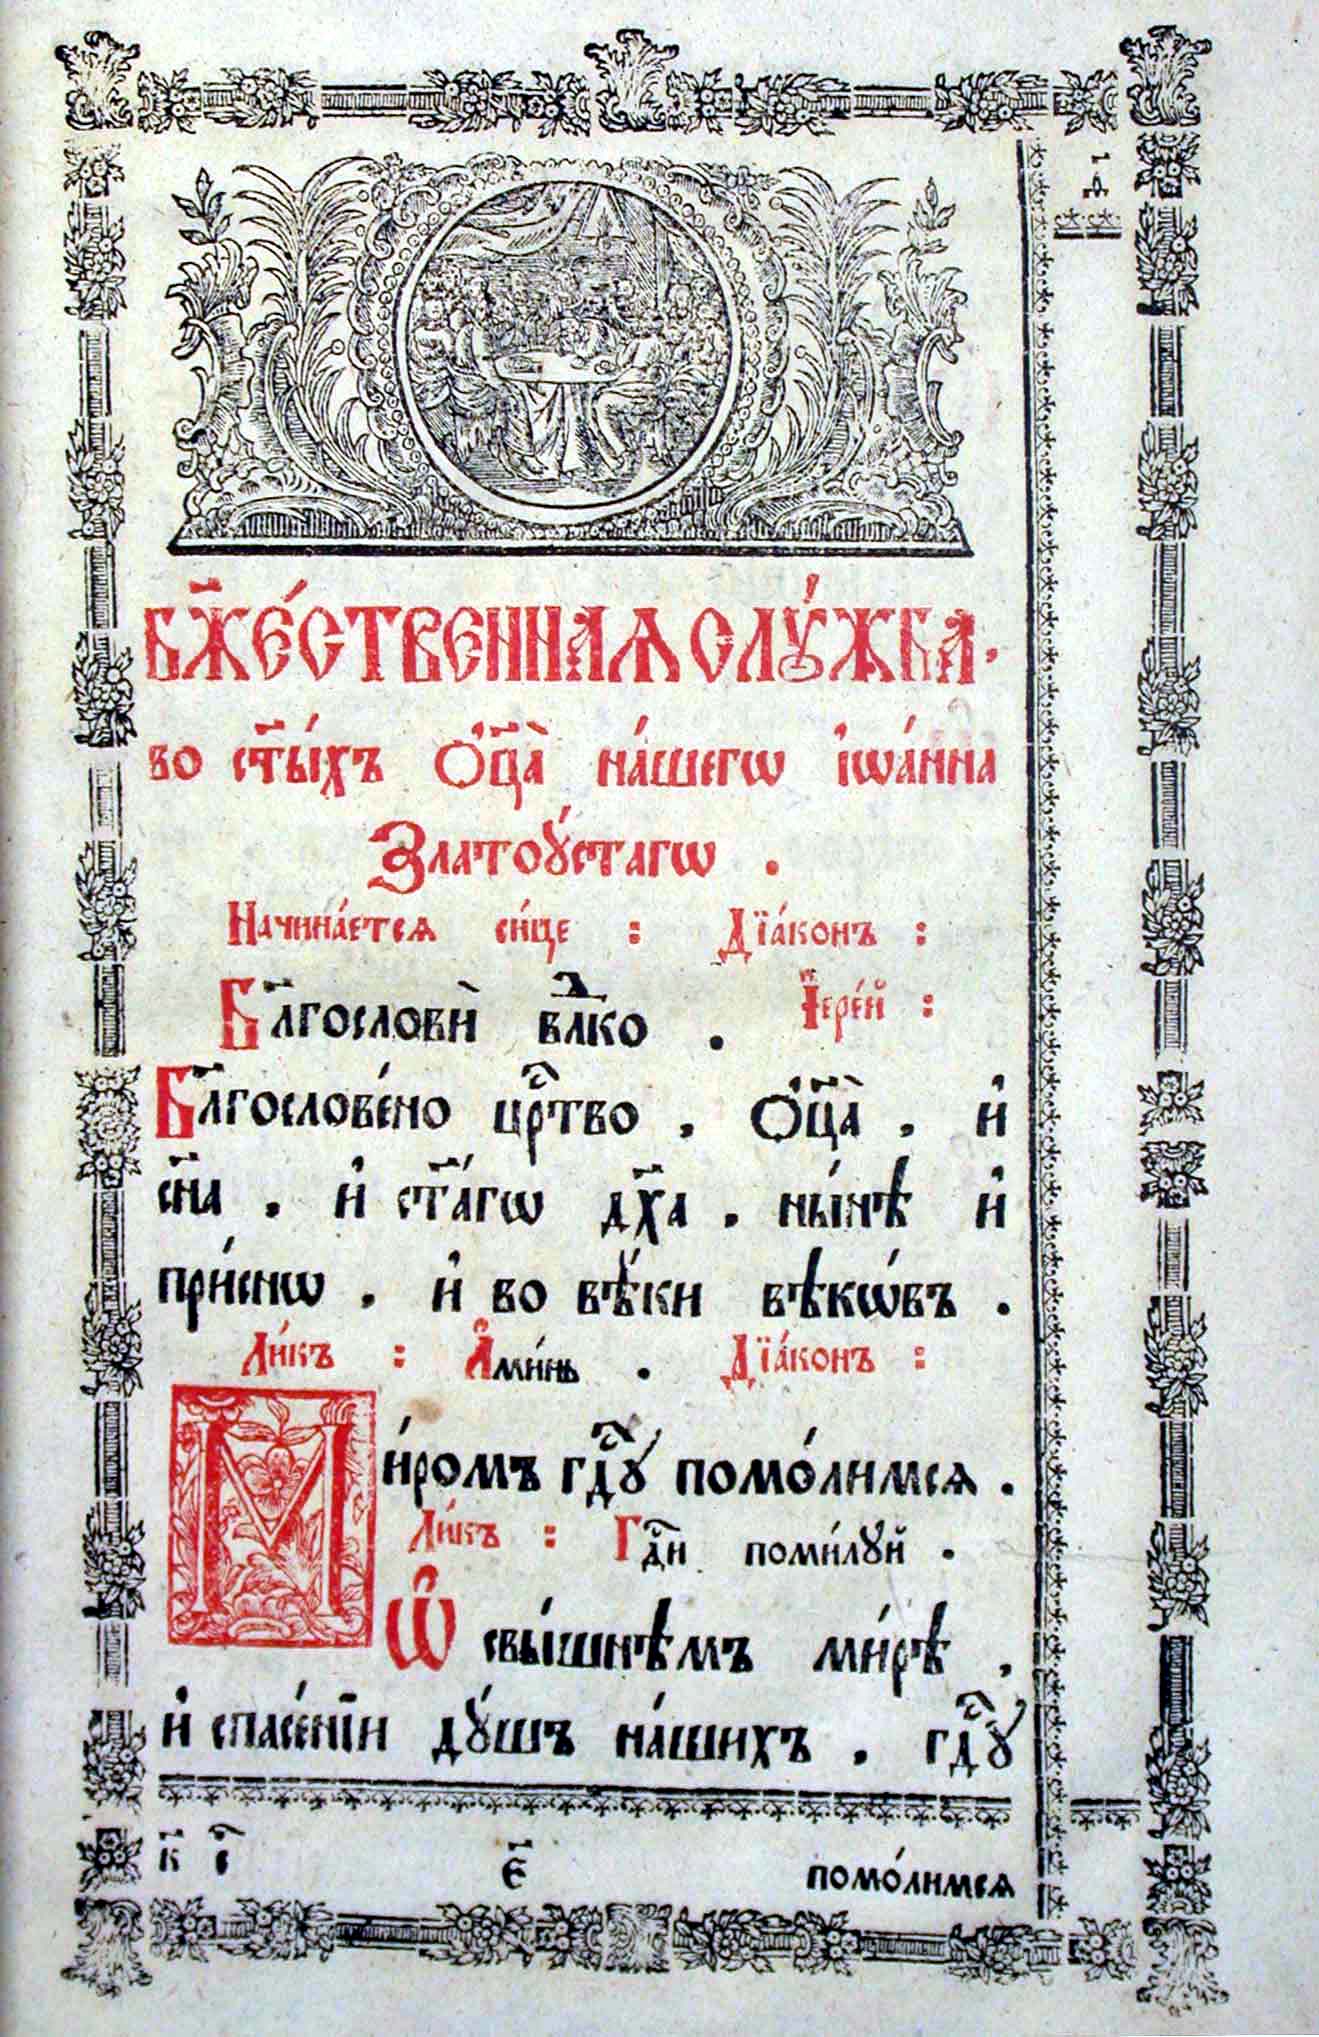 а҃
Бж҃е́ственнаѧ слꙋ́жба.
во ст҃ы́хъ Ѻ҆ц҃а̀ на́шегѡ і҆ѡа́нна
Златоꙋ́стагѡ .
Начина́етсѧ си́це : Дїа́конъ :
Бл҃гословѝ влⷣко . І҆ере́й :
Бл҃гослове́но црⷭ҇тво , Ѻ҆ц҃а̀ , и҆
сн҃а , и҆ ст҃а́гѡ дх҃а , ны́нѣ и҆
при́снѡ , и҆ во вѣ́ки вѣкѡ́въ .
Ли́къ : А҆ми́нь . Дїа́конъ :
Ми́ромъ гдⷭ҇ꙋ помо́лимсѧ .
Ли́къ : Гдⷭ҇и поми́лꙋй .
Ѡ҆ свы́шнѣмъ ми́рѣ ,
и҆ спасе́нїи дꙋ́шъ на́шихъ , гдⷭ҇ꙋ
к҃ с҃ є҃ помо́лимсѧ